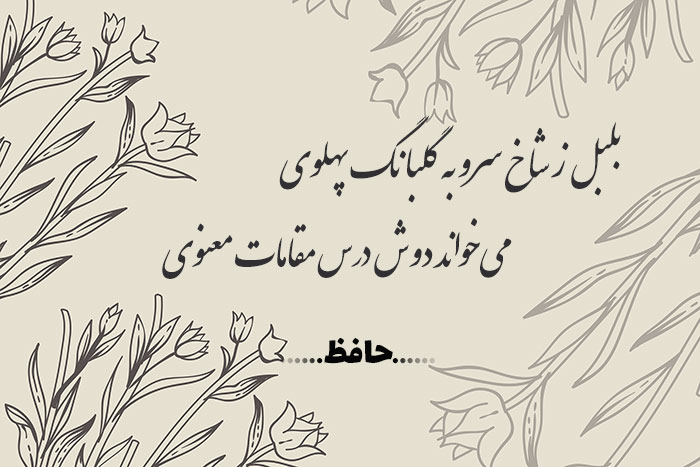 بلبل ز شاخ سرو به گلبانگ پهلوی
می‌خواند دوش درس مقامات معنوی
......حافظ......